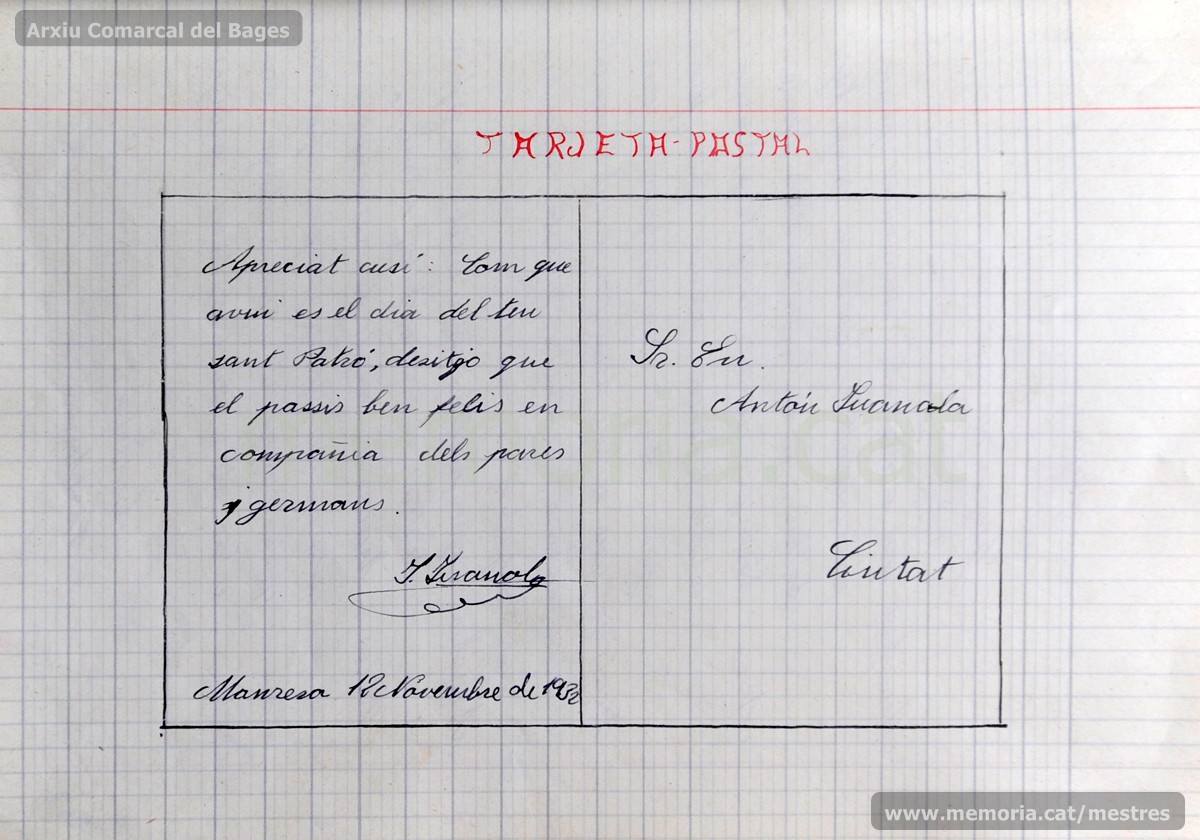 Arxiu Comarcal del Bages
TARJETA-POSTAL
Apreciat cusí: Com que
avui es el dia del teu
sant Patró, desitjo que
el passis ben felis en
compañia dels pares
y germans.
Sr. En.
Antón Juanola
J. Juanola
Ciutat
Manresa 12 Novembre de 1932
memoria.cat
www.memoria.cat/mestres